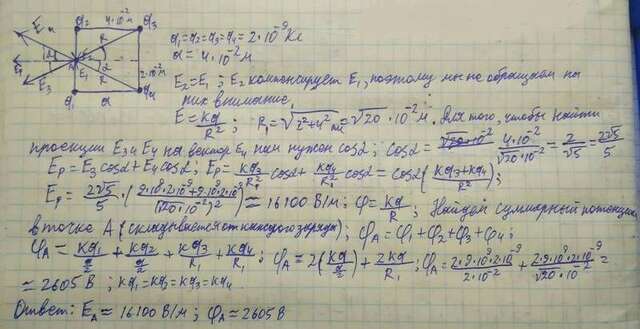 q₂ 4·10⁻² м q₃
q₁=q₂=q₃=q₄=2·10⁻⁹ Кл
a=4·10⁻² м
E₄ R α E₂ A E₁ R 2·10⁻² м
E₃ q₁ a q₄
E₂=E₁; E₂ компенсирует E₁, поэтому мы не обращаем на
них внимание.
E=kq/R²; R₁=√(2²+4²) = √20·10⁻² м. Для того, чтобы найти
проекции E₃ и E₄ на вектор Eₚ нам нужен cosα; cosα= 4·10⁻²/(√20·10⁻²) = 2/√5 = 2√5/5
Eₚ=E₃cosα+E₄cosα; Eₚ=kq₃/R₁² cosα + kq₄/R₁² cosα = cosα((kq₃+kq₄)/R₁²);
Eₚ=2√5/5·((9·10⁹·2·10⁻⁹+9·10⁹·2·10⁻⁹)/(√20·10⁻²)²)≈16100 В/м; φ=kq/R; Найдём суммарный потенциал
в точке A (складывается от каждого заряда); φA=φ₁+φ₂+φ₃+φ₄;
φA=kq₁/(a/2)+kq₂/(a/2)+kq₃/R₁+kq₄/R₁; φA=2(kq/(a/2))+2kq/R₁; φA=2·9·10⁹·2·10⁻⁹/(2·10⁻²)+2·9·10⁹·2·10⁻⁹/(√20·10⁻²)=
≈2605 В; kq₁=kq₂=kq₃=kq₄
Ответ: EA≈16100 В/м; φA≈2605 В